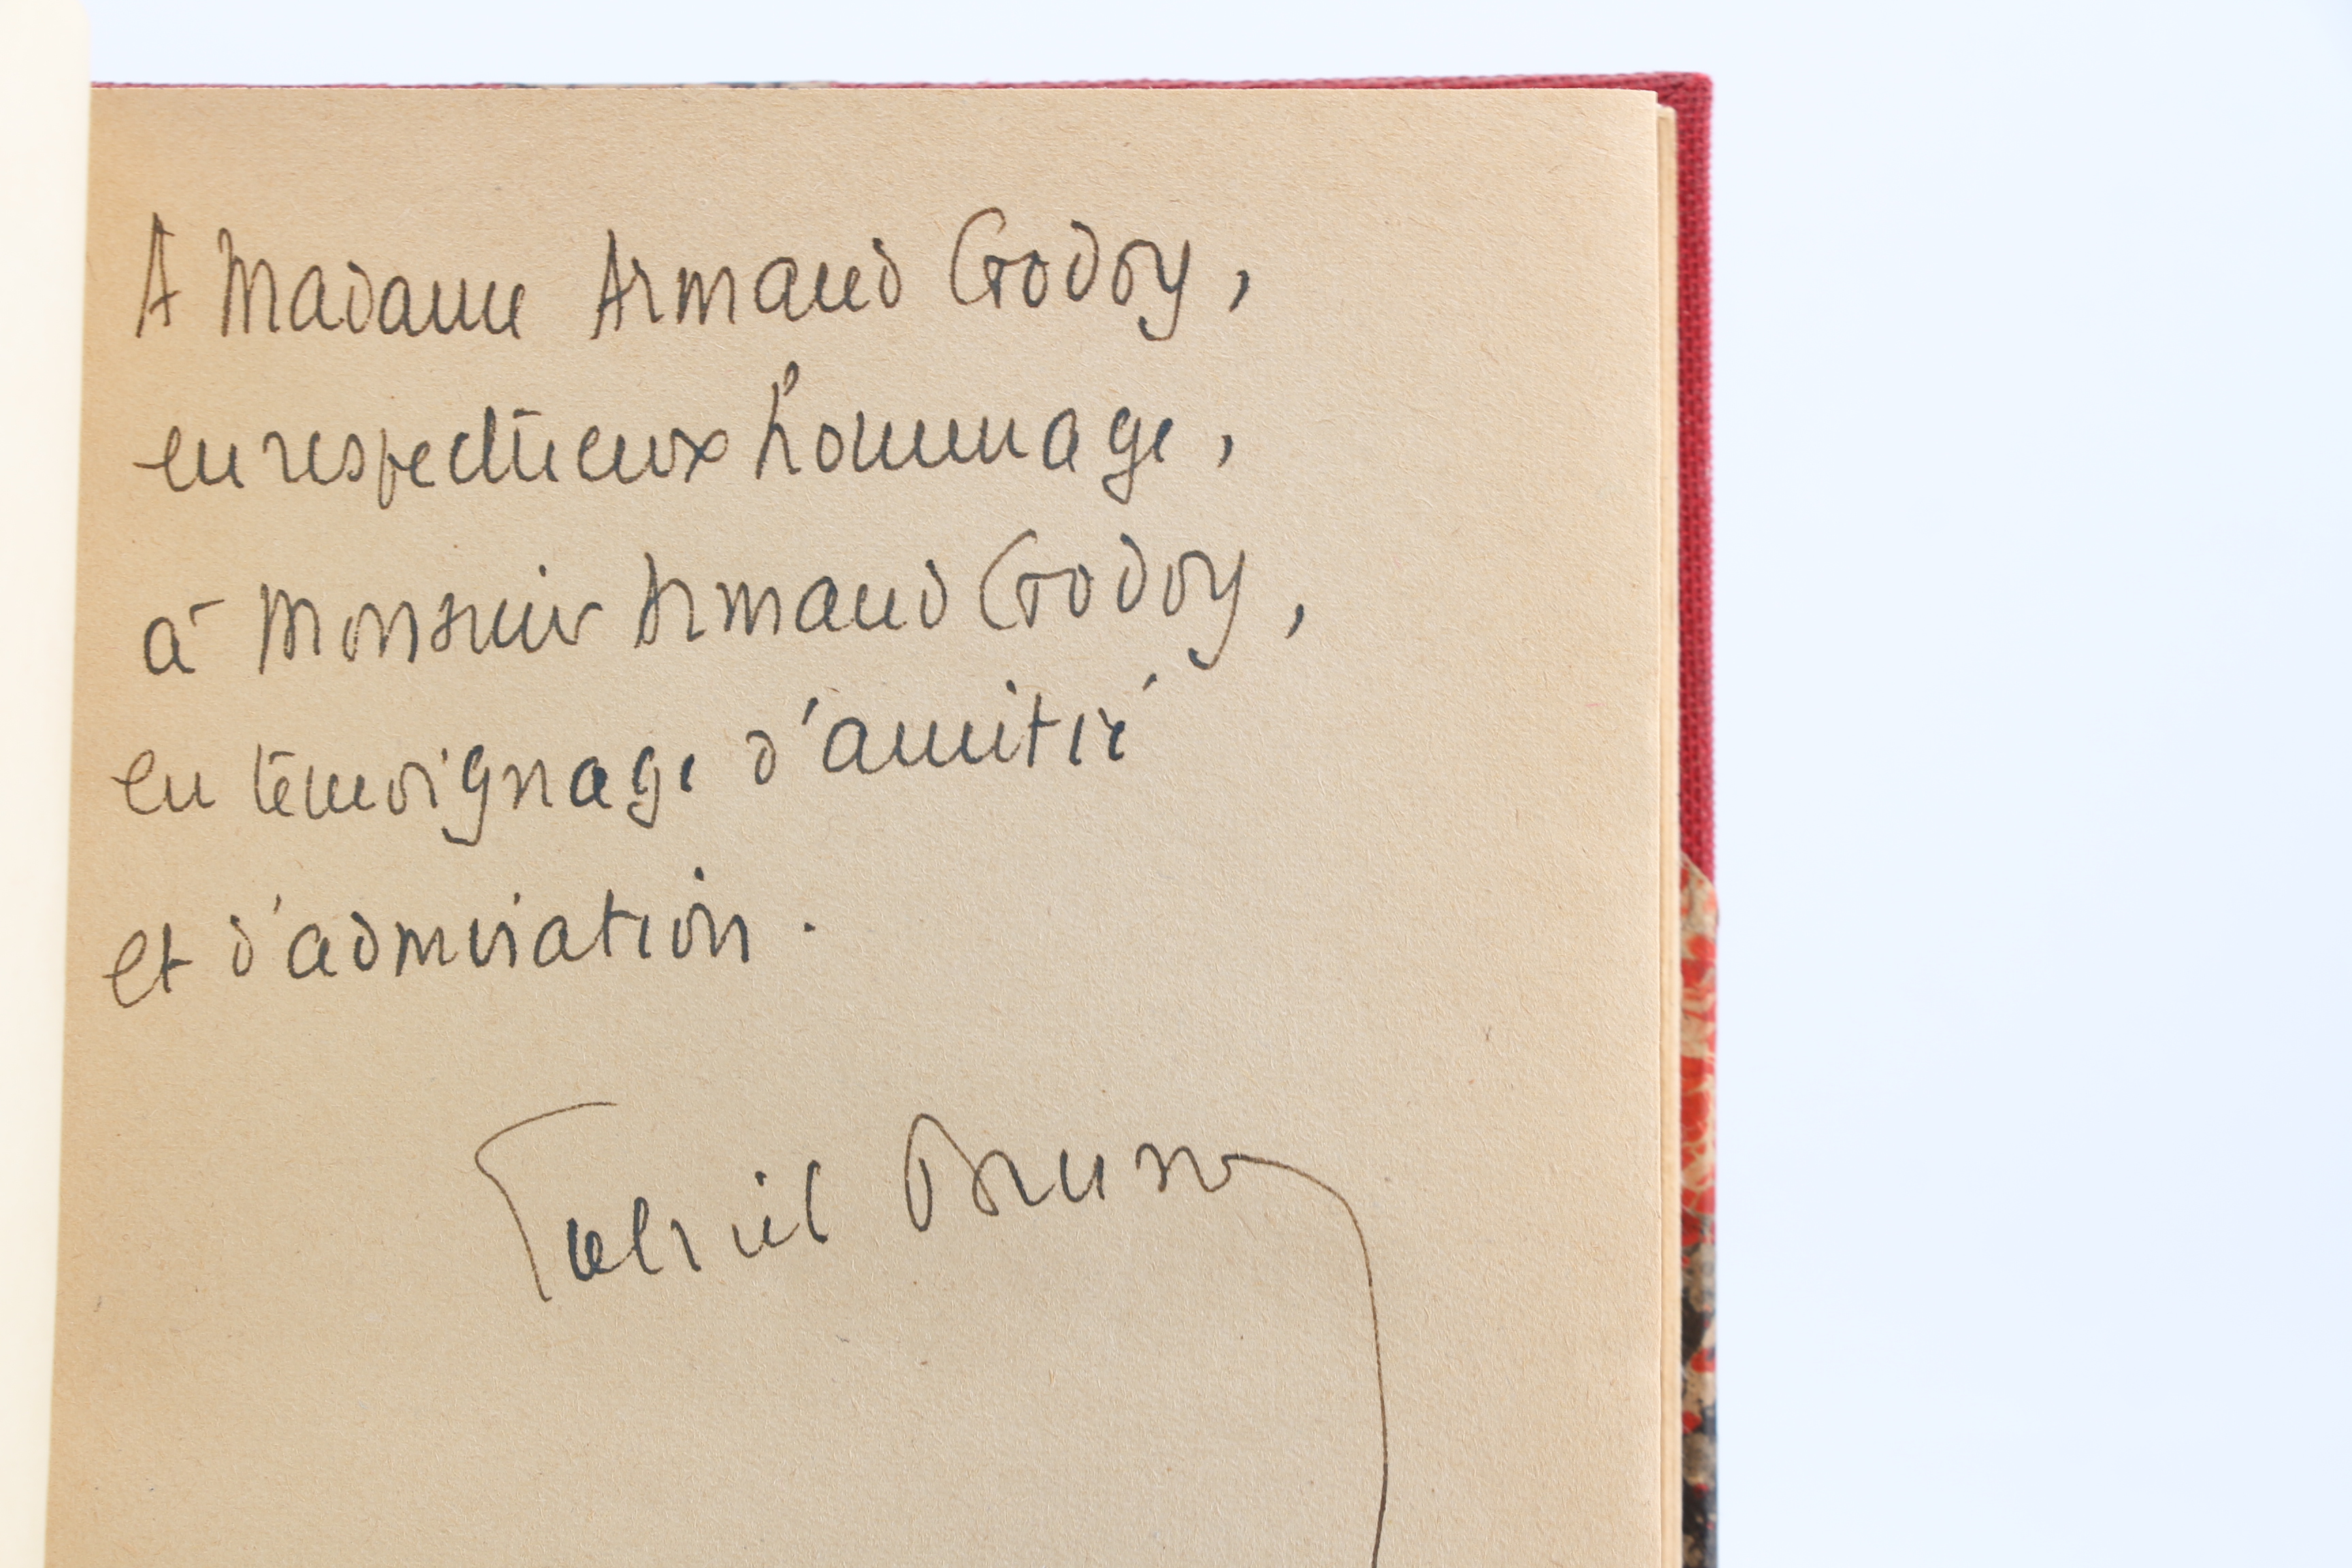 A Madame Armand Godoy,
en respectueux hommage,
à Monsieur Armand Godoy,
en témoignage d'amitié
et d'admiration.
Gabriel Bruno